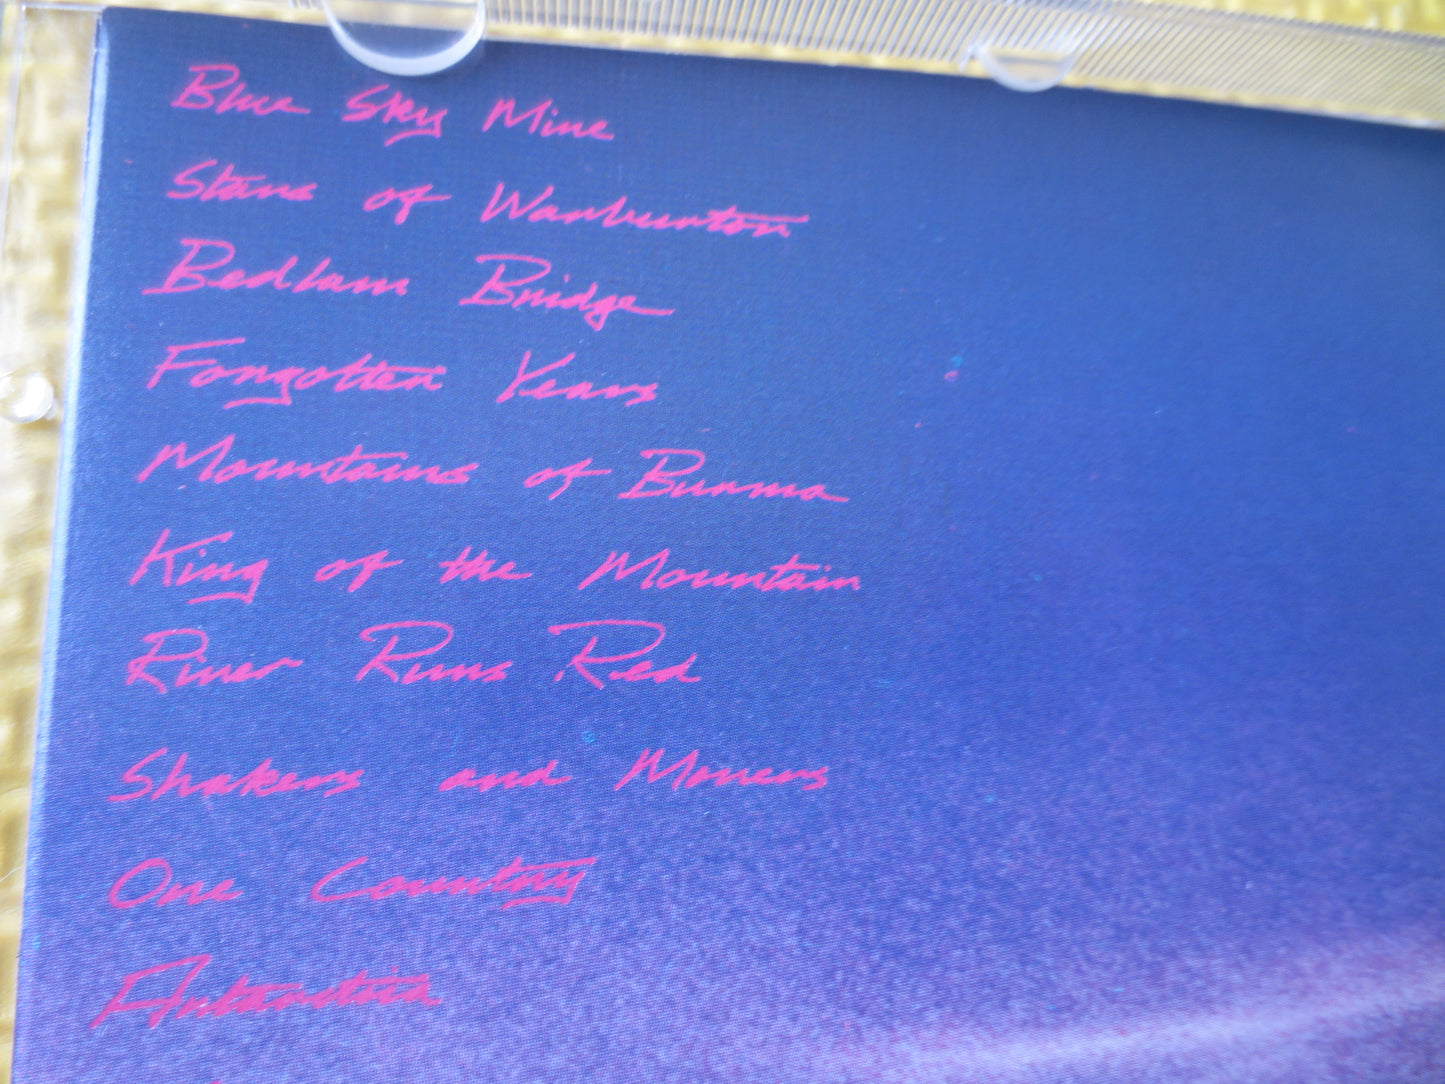 Blue Sky Mine
Stars of Warburton
Bedlam Bridge
Forgotten Years
Mountains of Burma
King of the Mountain
River Runs Red
Shakers and Movers
One Country
Antarctica